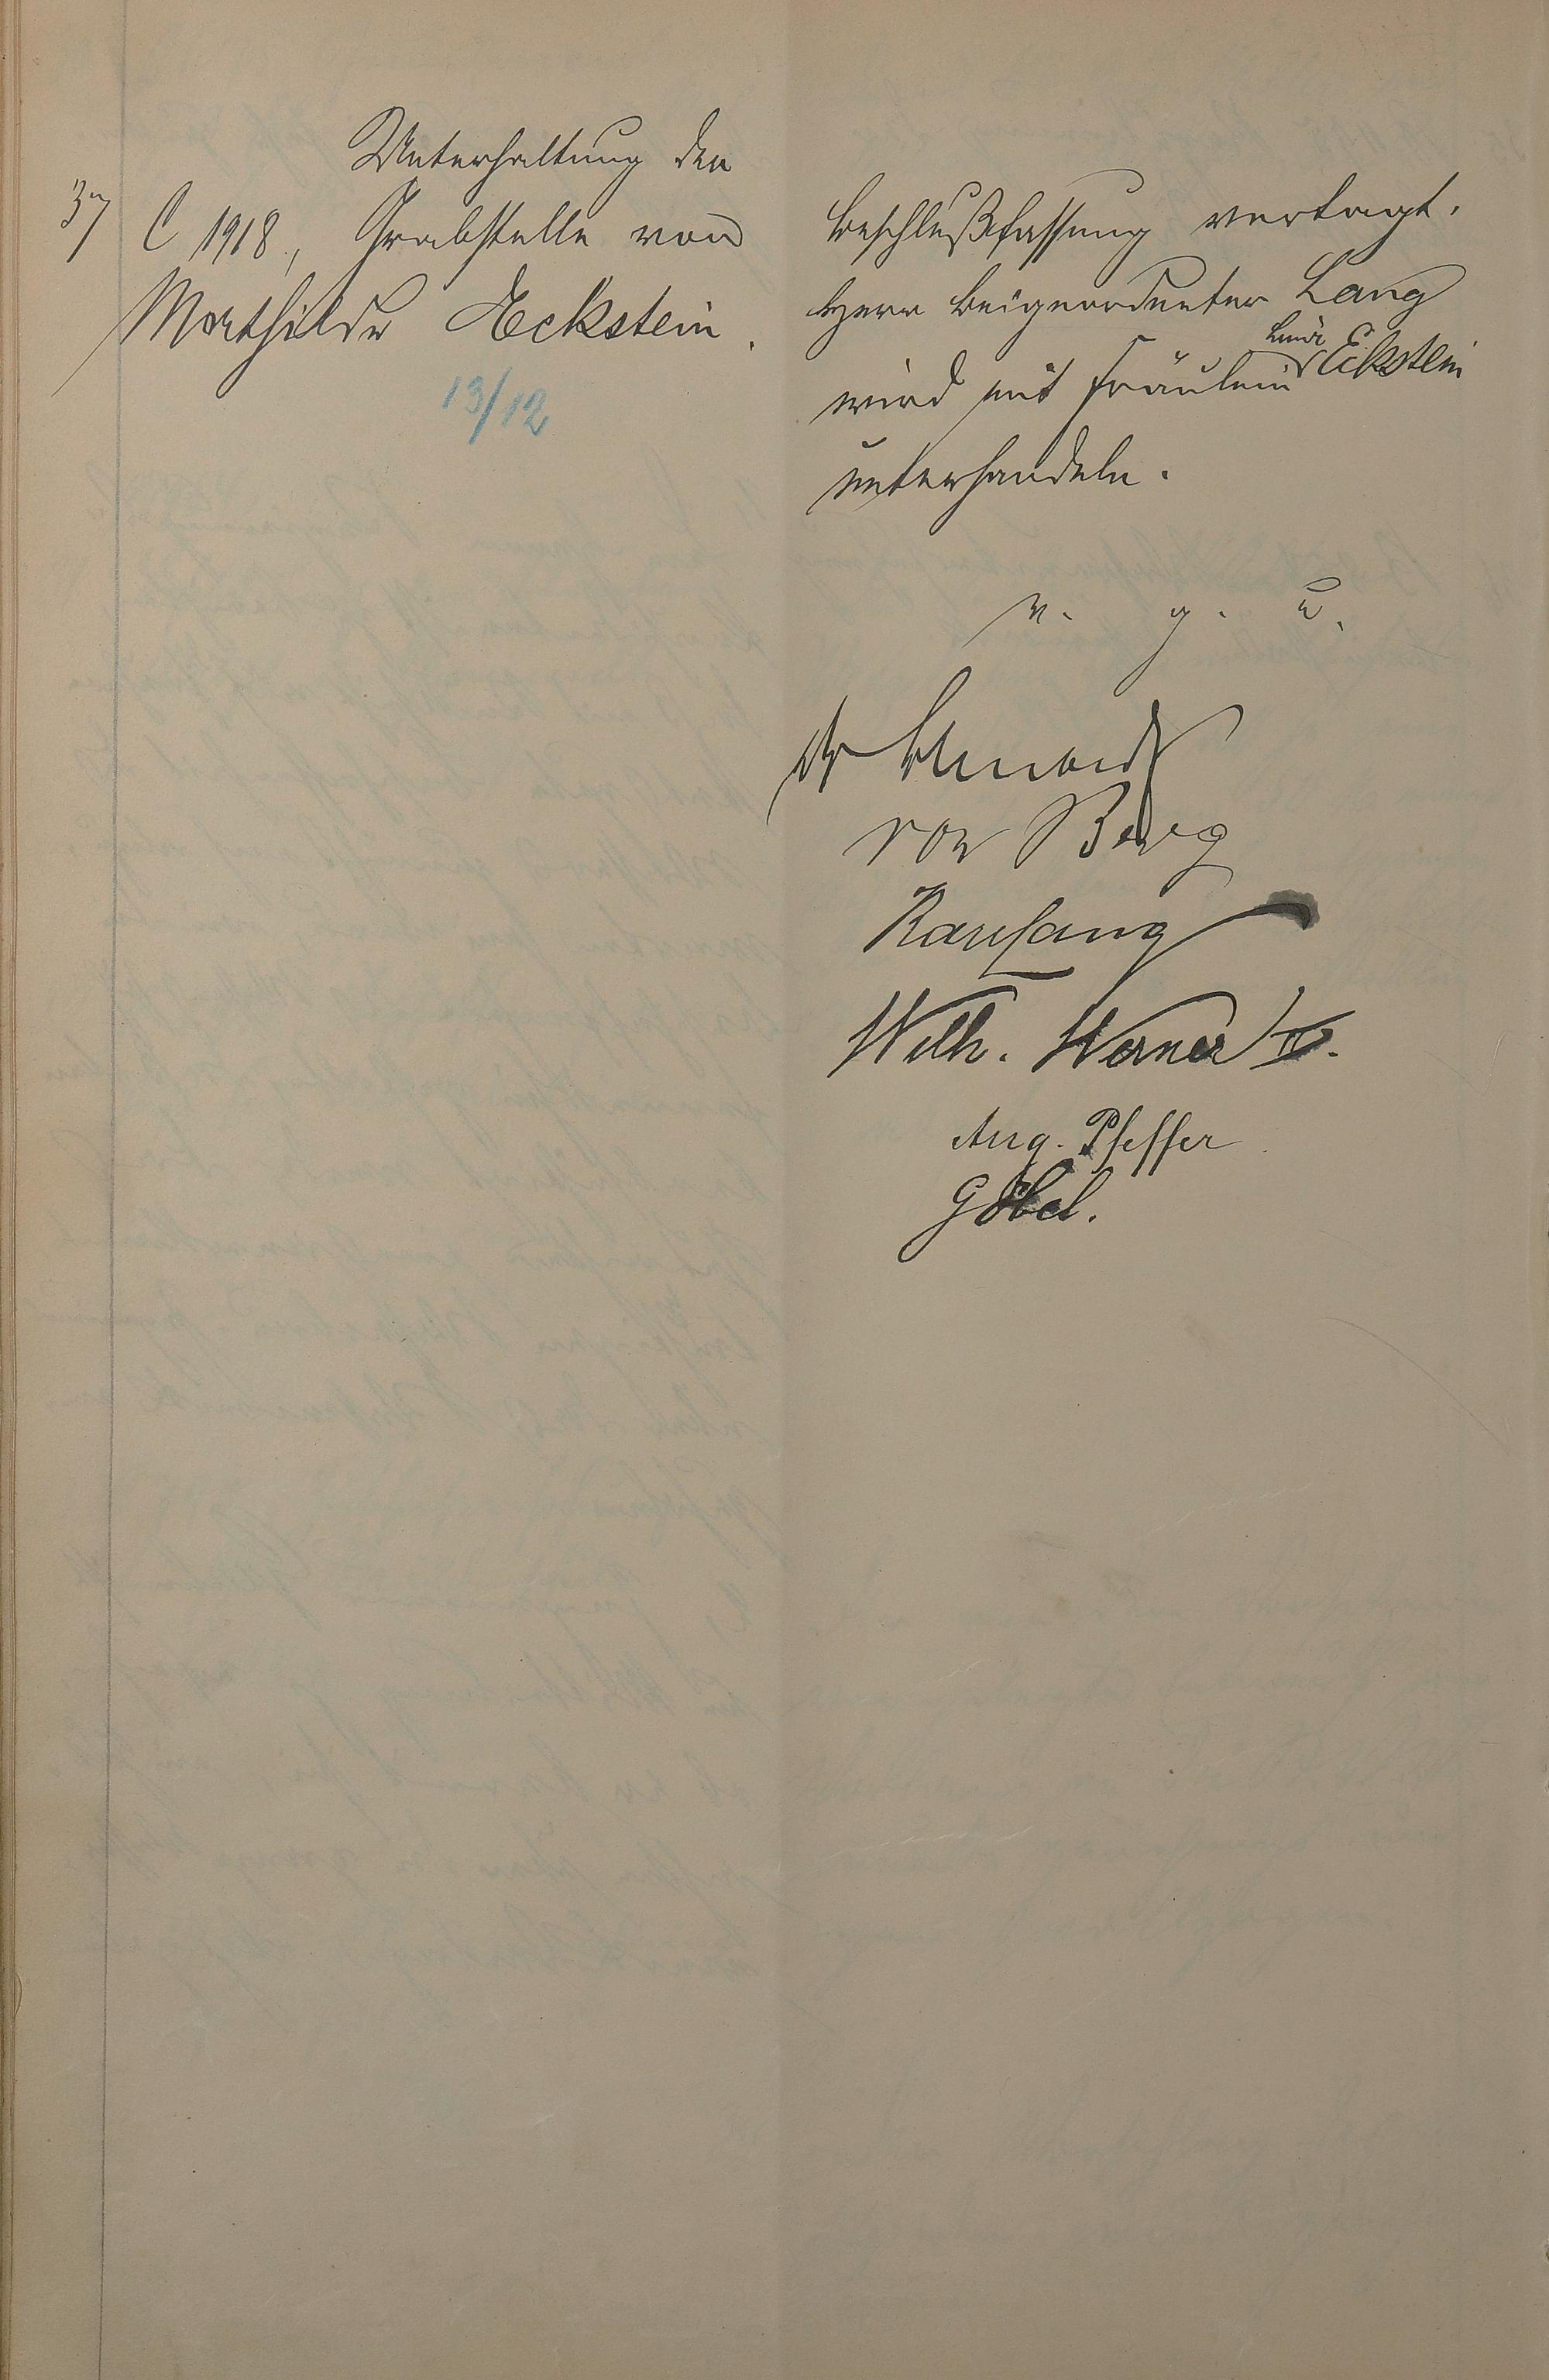 Unterhaltung der
37 C 1918, Grabstelle von
Mathilde Eckstein.
13/12
Beschlußfassung vertagt.
Herr Beigeordneter Lang
wird mit Fräulein Eckstein
unterhandeln.
v. g. u.
von Berg
Karl Lang
Wilh. Werner IV.
Aug. Pfeffer
Göbel.